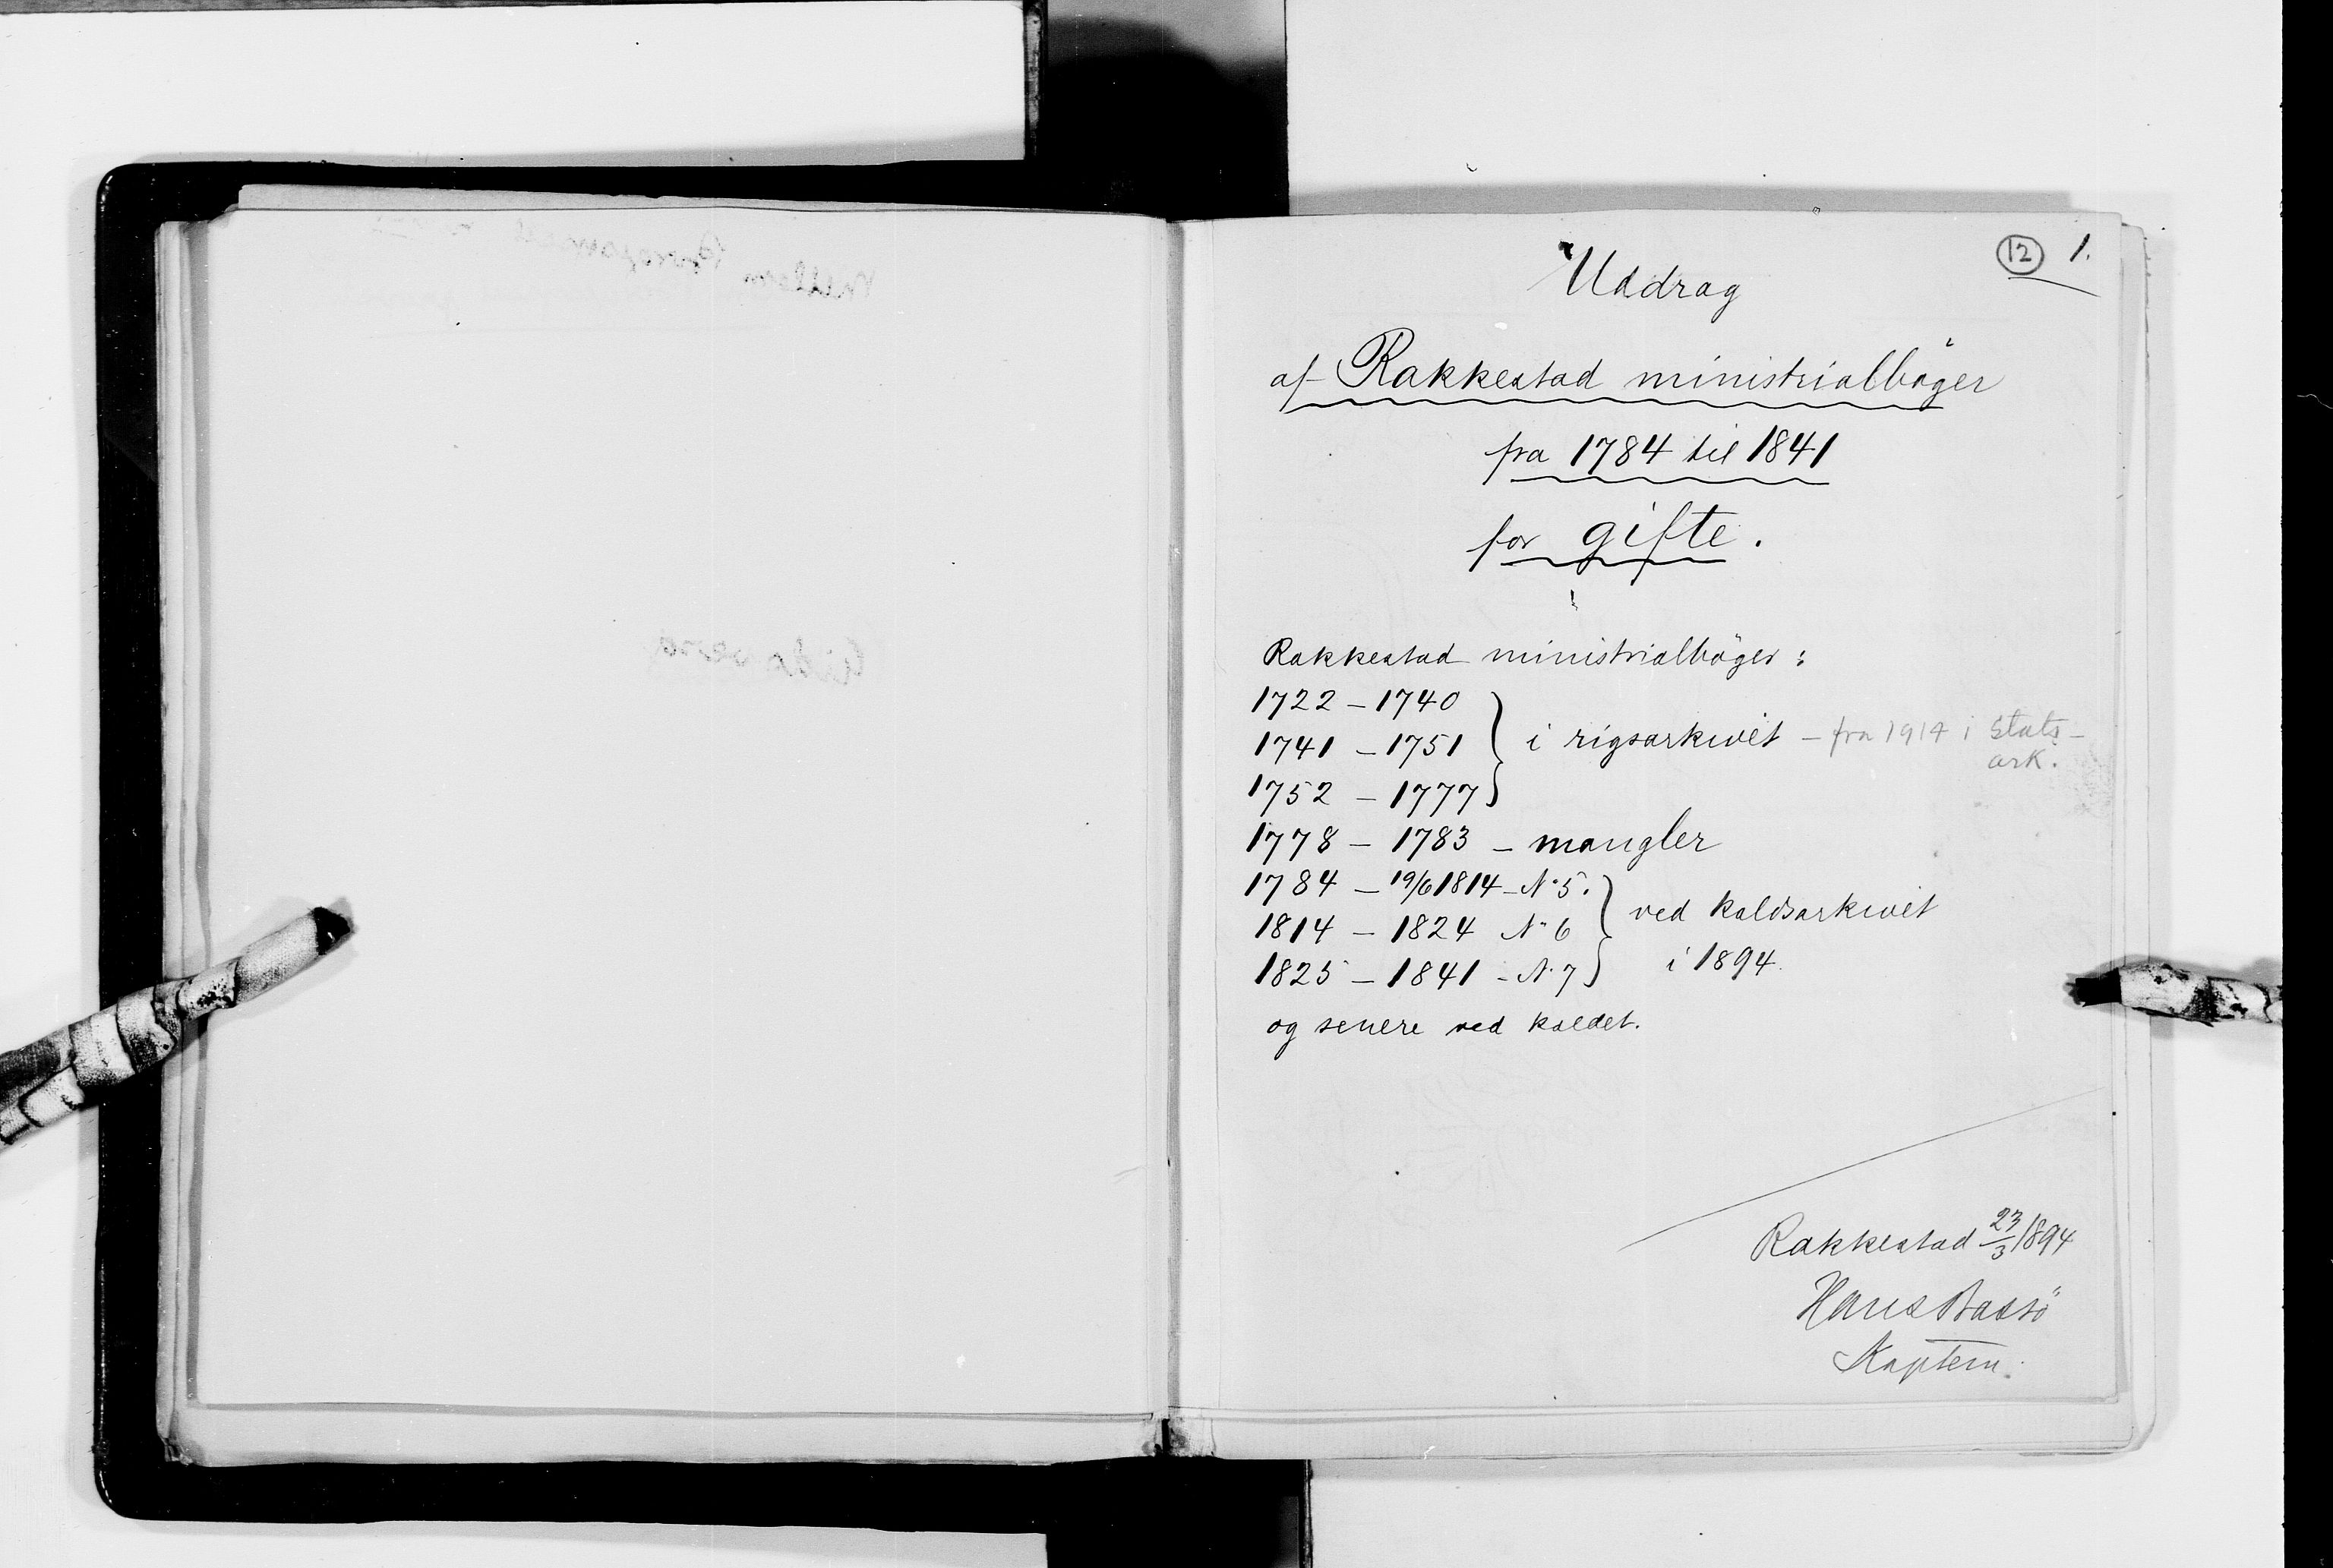 12 1.
Uddrag
af Rakkestad ministrialböger
fra 1784 til 1841
for gifte.
Rakkestad ministrialböger:
1722 – 1740
1741 – 1751 i rigsarkivet – fra 1914 i Stats-
ark.
1752 – 1777
1778 – 1783 – mangler
1784 – 19/6 1814 – No 5.
1814 – 1824 No 6 ved kaldsarkivet
1825 – 1841 – No 7 i 1894.
og senere ved kaldet.
Rakkestad 23/3 1894
Hans
Kaptein.